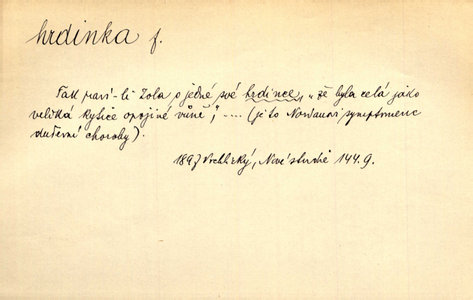 hrdinka f.
Fakt praví-li Zola o jedné své hrdince, „že byla celá jako
veliká kytice opojné vůně", .... (je to Nordauovi symptomem
duševní choroby).
1897 Vrchlický, Nové studie 144.9.